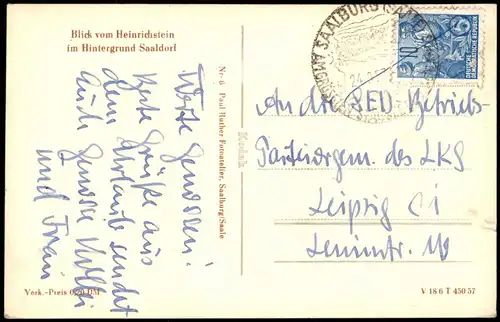 Blick vom Heinrichstein
im Hintergrund Saaldorf
Werte Genossen!
Beste Grüße aus
dem Urlaub sendet
Euch Genosse
und Frau
Verk.-Preis 0,20 DM
Nr. 6 Paul Ruther Fotoatelier, Saalburg/Saale
Kodak
SAALBURG (SAALE)
10
An die SED Betriebs-
Parteiorgan. des LKG
Leipzig C1
Leninstr. 16
V 18 6 T 450 57